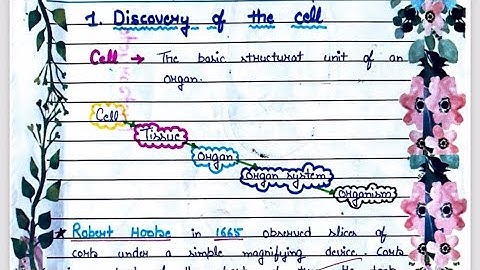 1. Discovery of the cell
Cell → The basic structural unit of an
organ.
Cell
Tissue
Organ
Organ system
Organism
★ Robert Hooke in 1665 observed slices of
cork under a simple magnifying device. Cork